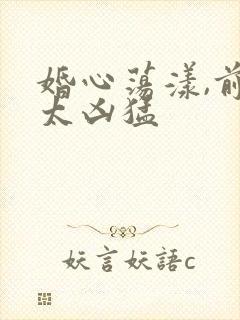 婚心荡漾,前
太凶猛
妖言妖語c